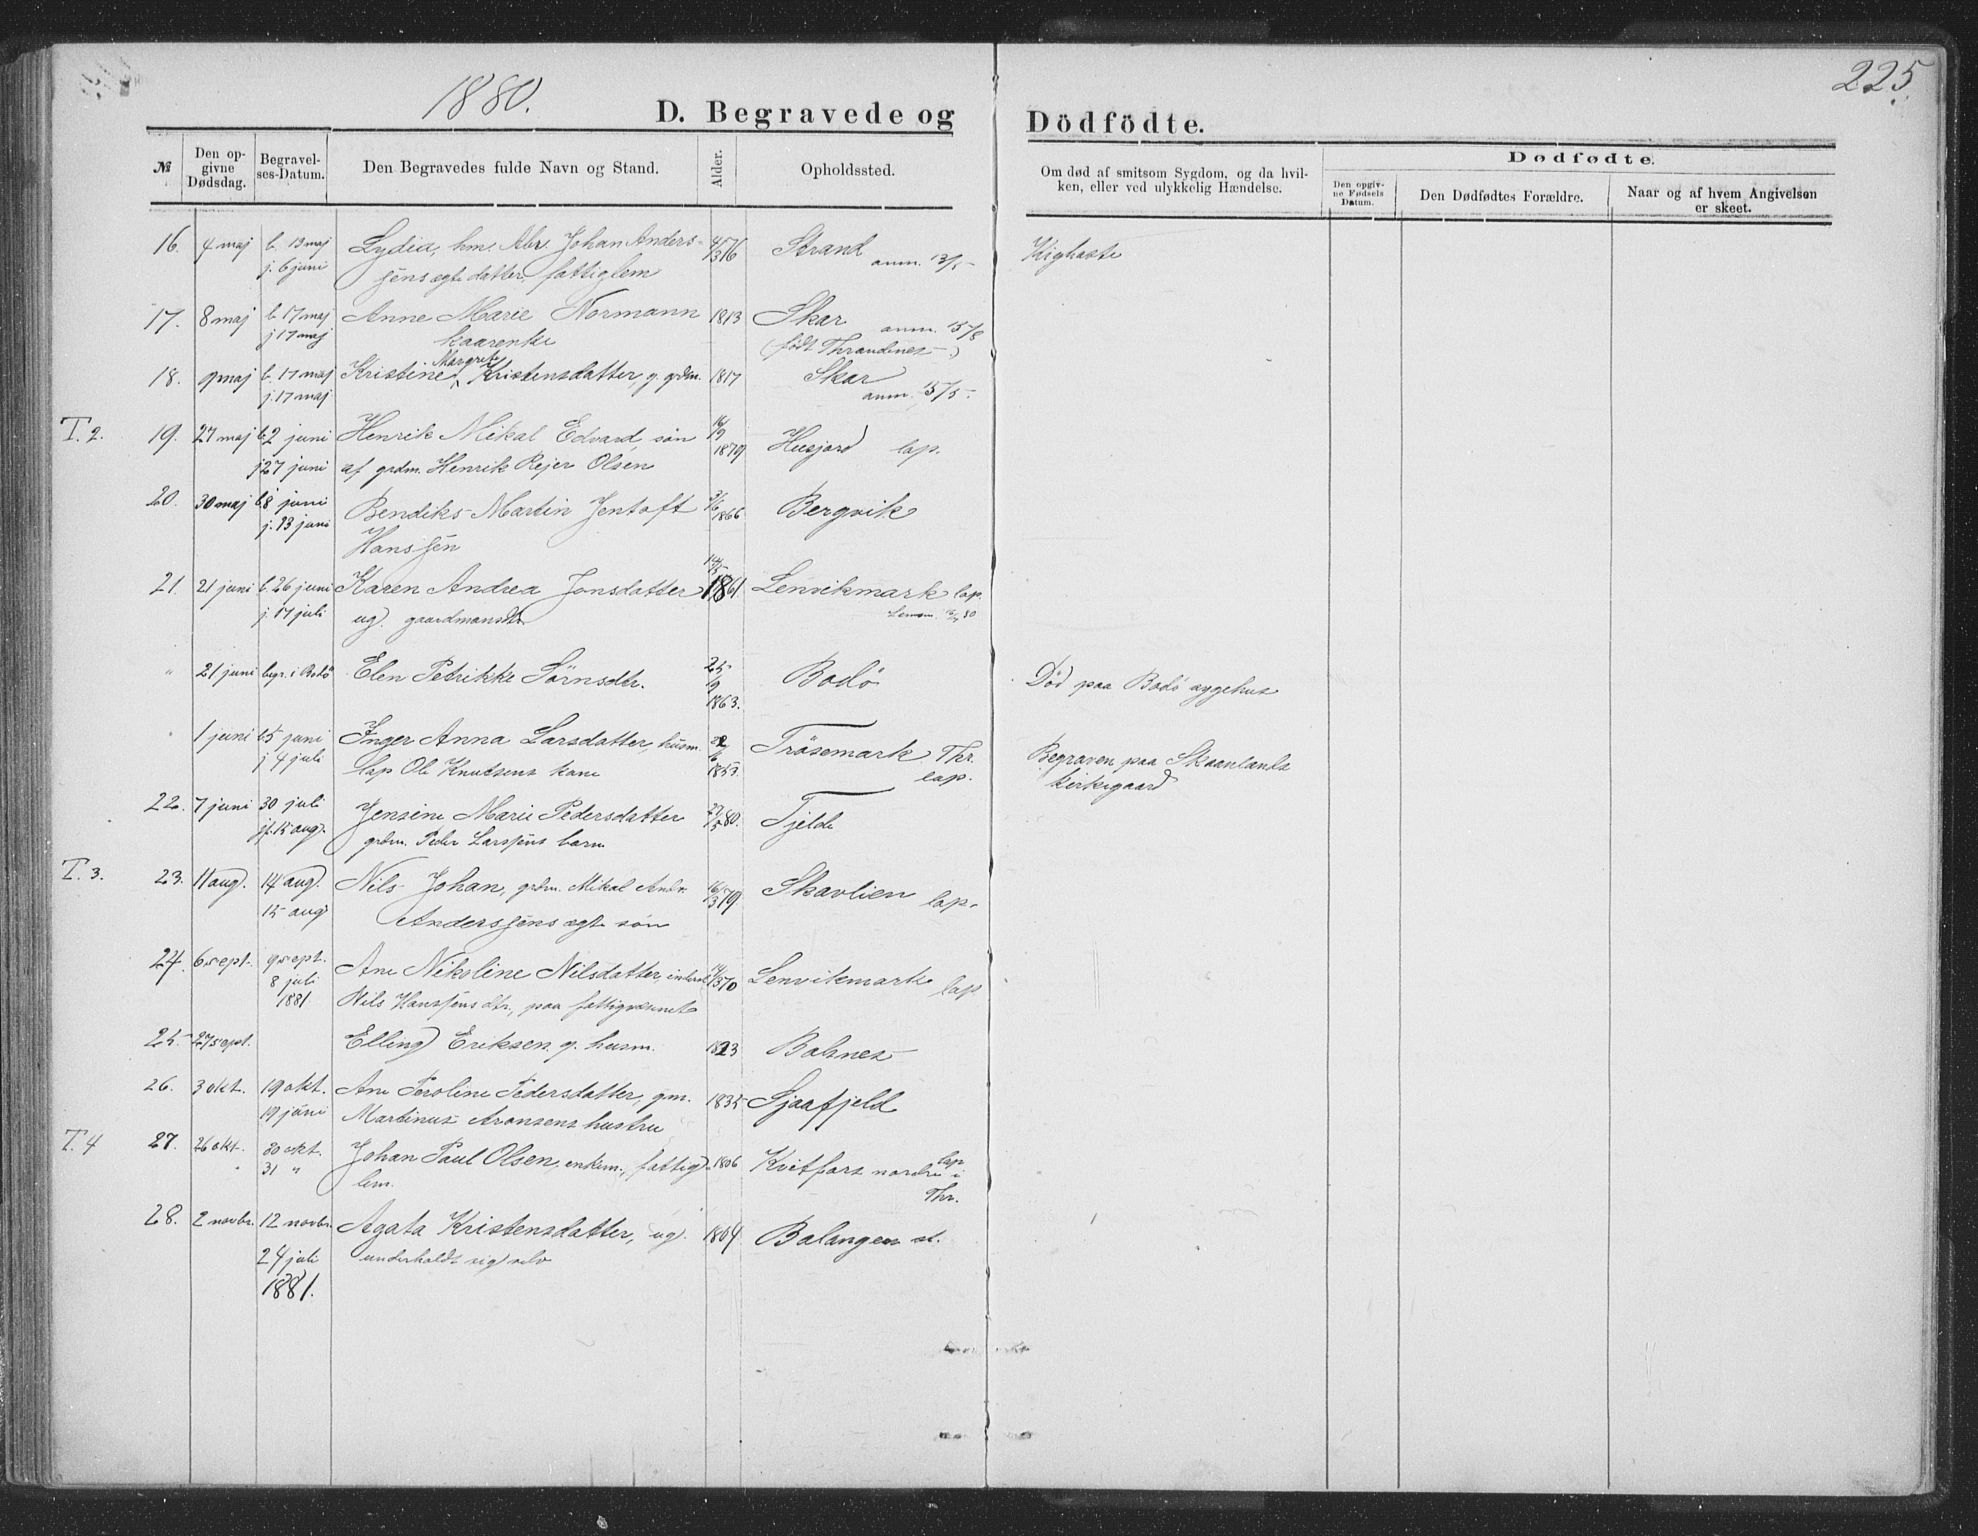 225.
1880.
D. Begravede og Dödfödte.
№
Den opgivne Dødsdag.
Begravelses-Datum.
Den Begravedes fulde Navn og Stand.
Alder.
Opholdssted.
Om død af smitsom Sygdom, og da hvilken, eller ved ulykkelig Hændelse.
Dødfødte.
Den opgivne Fødsels Datum.
Den Dødfødtes Forældre.
Naar og af hvem Angivelsen er skeet.
16. 4 maj b. 13 maj Lydia, hm. Abr. Johan Anders- 4/3 76 Strand Kighoste
j. 6 juni sens ægte datter, fattiglem anm. 13/5
17. 8 maj b. 17 maj Anne Marie Normann 1813 Skar anm. 15/5
j 17 maj kaarenke (født Thrandines)
18. 9 maj b. 17 maj Kristine Margrete Kristensdatter, g. grdm. 1817 Skar
j. 17 maj anm. 15/5.
T. 2. 19. 27 maj b. 2 juni Henrik Mikal Edvard, søn 1879 Husjord lap.
j 27 juni af grdm. Henrik Rejer Olsen
20. 30 maj b 8 juni Bendiks Martin Jentoft 3/6 1866 Bergvik
j. 13 juni Hanssen
21. 21 juni b. 26 juni Karen Andrea Jonsdatter 1861. Lenvikmark lap.
j. 17 juli ug. gaardmandsdtr
" 21 juni begr. i Bodö Elen Petrikke Sörnsdtr. 25/9 1863. Bodö Död paa Bodö sygehus
1 juni b 5 juni Inger Anna Larsdatter, husm. 1853. Trösemark Thr. Begraven paa Skaanlands
j 4 juli lap Ole Knutsens kone lap. kirkegaard
22. 7 juni 30 juli Jensine Marie Pedersdatter 27/5 80. Tjelde
jf. 15 aug. grdm. Peder Larssens barn
T. 3. 23. 11 aug. 14 aug. Nils Johan, grdm. Mikal Andr. 16/3 79 Skavlien lap.
15 aug Anderssens ægte søn
24. 6 sept. 9 sept. Ane Nikoline Nilsdatter, 70 Lenvikmark lap
8 juli 1881 Nils Hanssens dtr., paa fattigvæsenet
25. 27 sept. Elling Eriksen g. husm. 1823 Bolnes
26. 3 okt. 19 okt. Ane Peroline Pedersdatter, gm. 1835 Sjaafjeld
19 juni Martinus Aronsens hustru
T. 4 27. 26 okt. 30 okt. Johan Paul Olsen, enkem., fattig- 1806 Kvitfors nordre lap i
31 " lem. Thr.
28. 2 novbr. 12 novbr. Agata Kristensdatter, ug. 1804 Balangen st.
24 juli underholdt sig selv
1881.